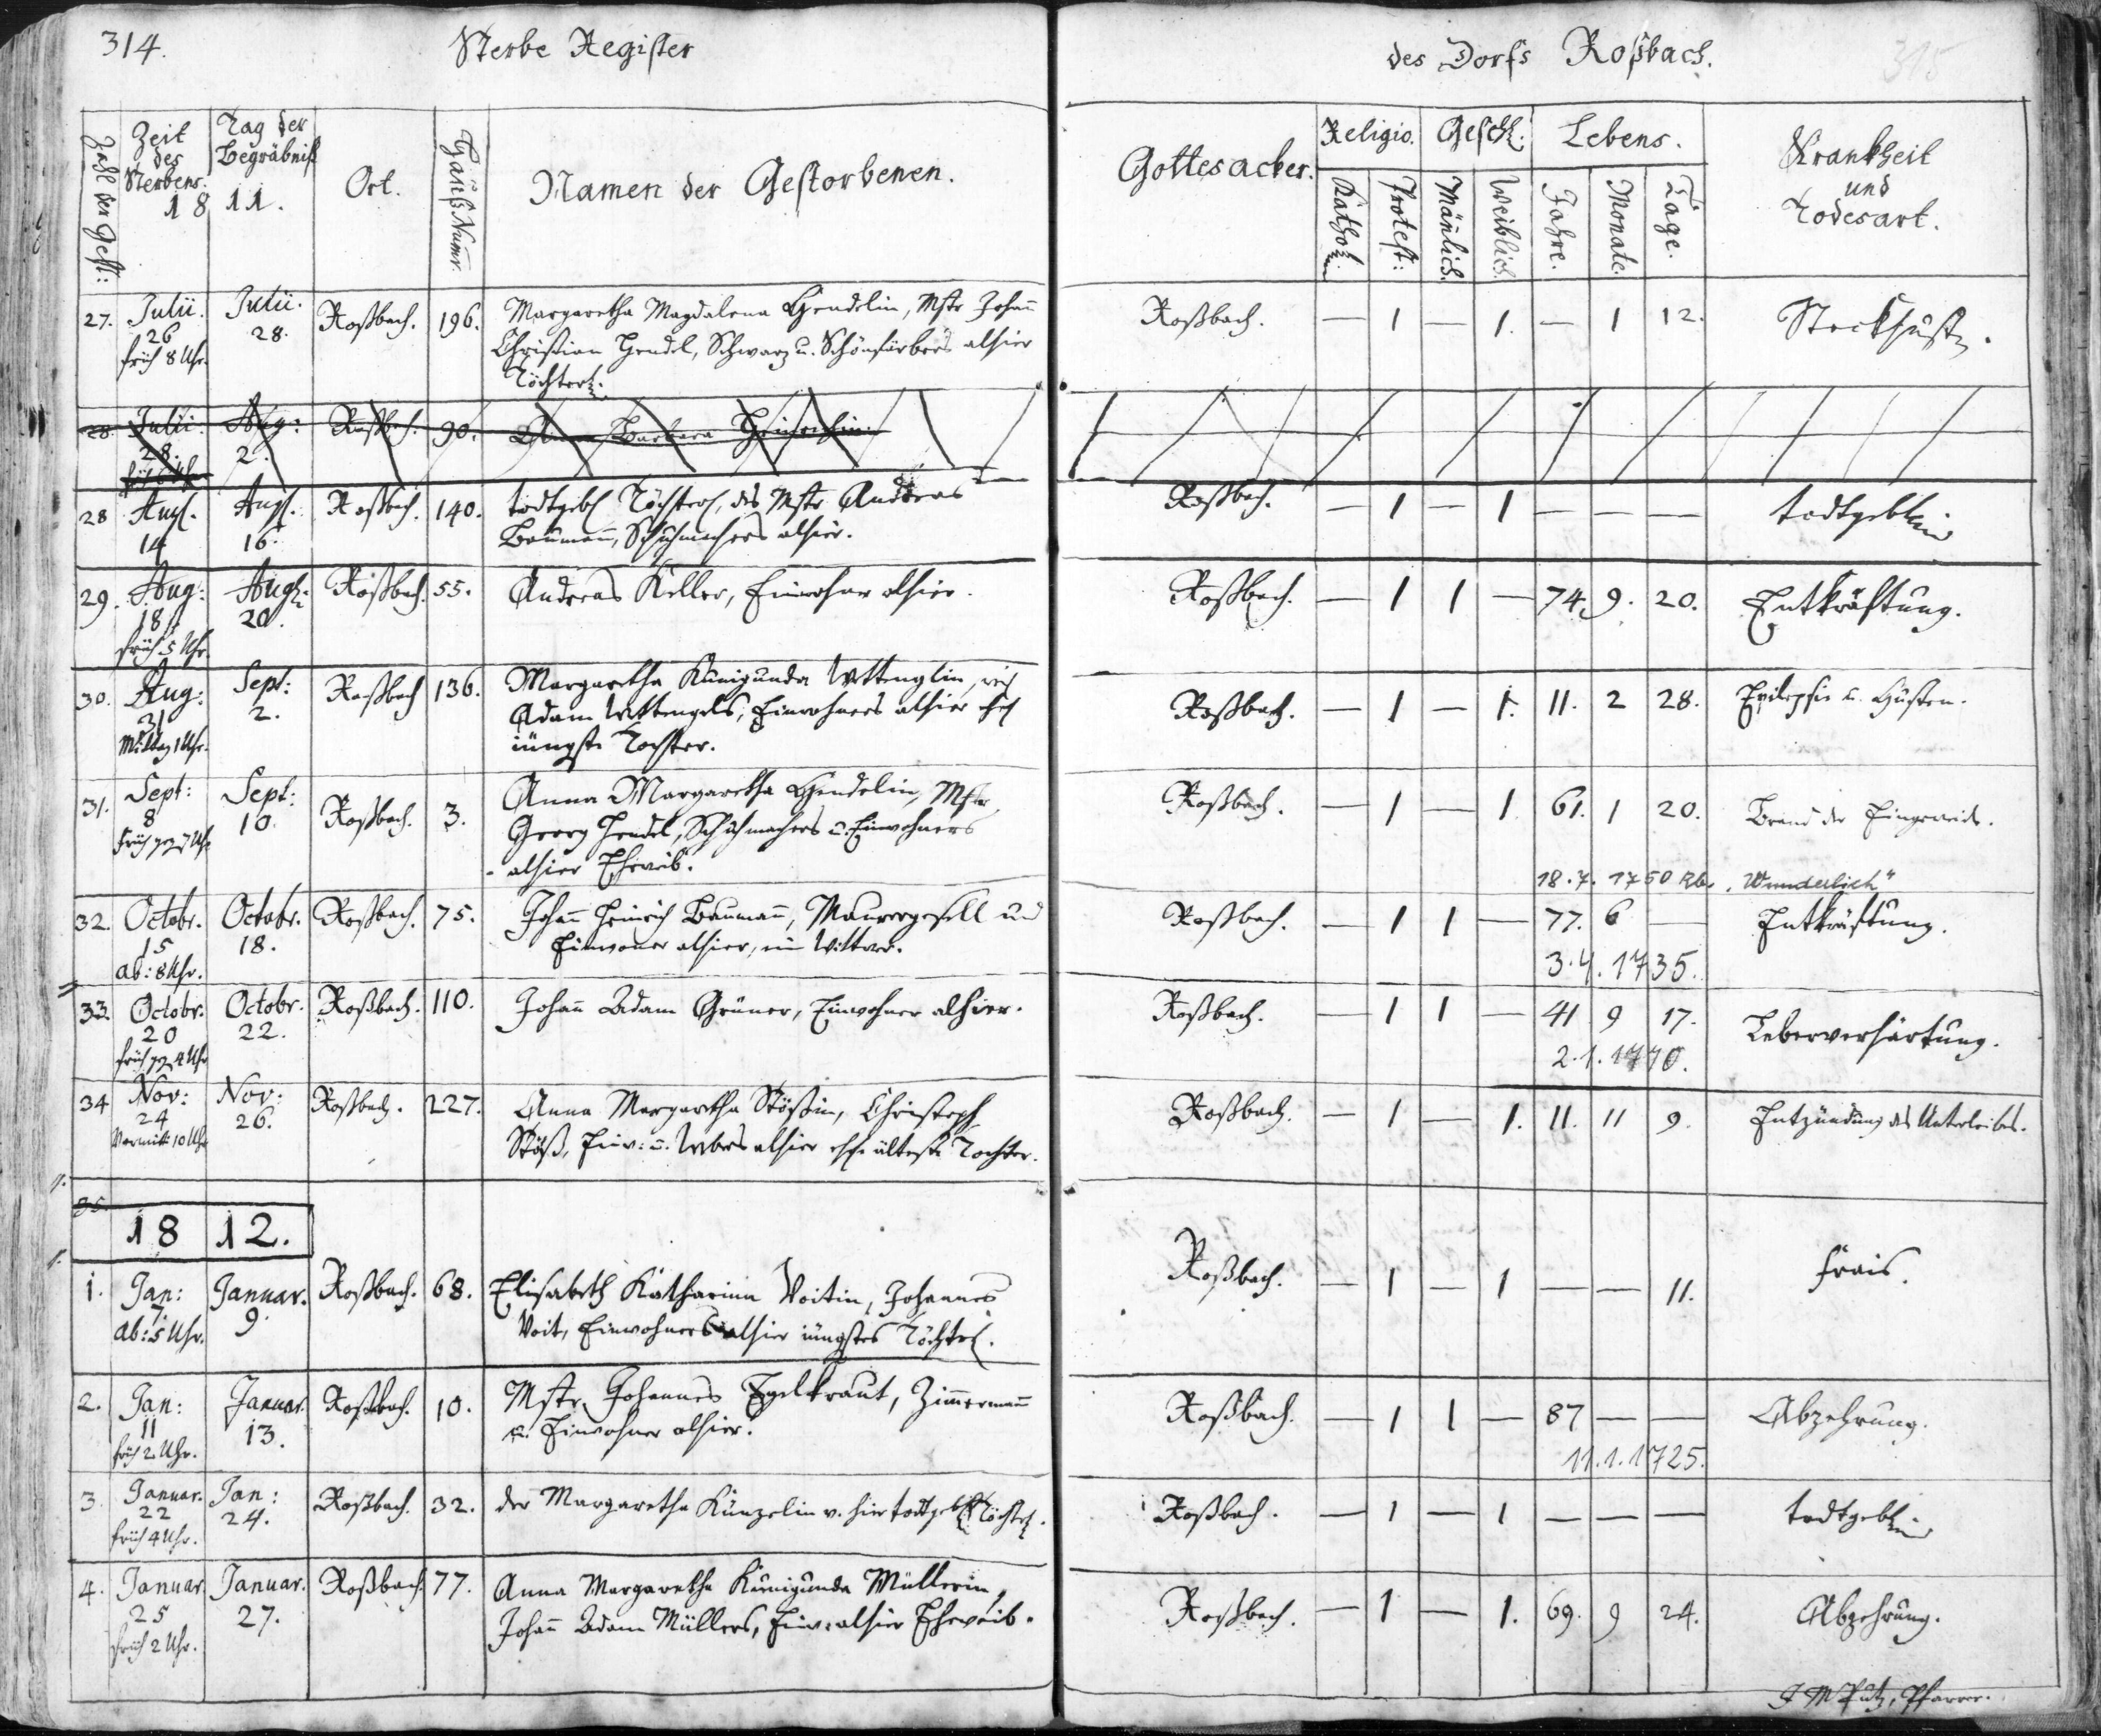 314.
Sterbe Register
des Dorfs Roßbach.
315
Zahl der Gest:
Zeit des Sterbens. 18
Tag der Begräbniß 11.
Ort.
Hauß Numr.
Namen der Gestorbenen.
Gottesacker.
Religio.
Geschl:
Lebens.
Krankheit und Todesart.
Kathol.
Protest:
Mänlich.
Weiblich.
Jahre.
Monate.
Tage.
27. Julii. Julii. Roßbach. 196. Margaretha Magdalena Hendelin, Mstr Johañ Roßbach. — 1 — 1. — 1 12. Steckhusten.
26 28. Christian Hendel, Schwarz u. Schönfärbers alhier
früh 8 Uhr. Töchterl.
28. Julii. Aug: Roßbach. 90. Barbara
28. 2.
28 Aug. Aug. Roßbach. 140. todtgeb. Töchterl, des Mstr Andreas Roßbach. — 1 — 1 — — — todtgeb.
14 16. Baumañ, Schuhmachers alhier.
29. Aug: Aug: Roßbach. 55. Andreas Keller, Einwohner alhier. Roßbach. — 1 1 — 74. 9. 20. Entkräftung.
18 20.
früh 5 Uhr.
30. Aug: Sept: Roßbach 136. Margaretha Kunigunda Wettenglin, Roßbach. — 1 — 1. 11. 2 28. Epilepsie u. Husten.
31 2. Adam Wettengels, Einwohners alhier ehl
Mittag 1 Uhr. jüngste Tochter.
31. Sept: Sept: Roßbach. 3. Anna Margaretha Hendelin, Mstr Roßbach. — 1 — 1. 61. 1 20. Brand der Eingeweide.
8 10. Georg Hendel, Schuhmachers u. Einwohners
früh geg 7 Uhr alhier Eheweib.
18. 7. 1750 Rb. „Wunderlich"
32. Octobr. Octobr. Roßbach. 75. Johañ Heinrich Baumañ, Maurergesell und Roßbach. — 1 1 — 77. 6 — Entkräftung.
15 18. Einwoner alhier, ein Wittwer.
ab: 8 Uhr.
3. 4. 1735.
33. Octobr. Octobr. Roßbach. 110. Johañ Adam Grüner, Einwohner alhier. Roßbach. — 1 1 — 41 9 17. Leberverhärtung.
20 22.
früh geg 4 Uhr
2. 1. 1770.
34 Nov: Nov: Roßbach. 227. Anna Margaretha Stößin, Christoph Roßbach. — 1 — 1. 11. 11 9. Entzündung des Unterleibes.
24 26. Stöß, Einw: u. Webers alhier ehl. älteste Tochter.
Vormitt 10 Uhr
35
18 12.
1. Jan: Januar. Roßbach. 68. Elisabeth Katharina Voitin, Johannes Roßbach. — 1 — 1 — — 11. Frais.
7. 9. Voit, Einwohners alhier jüngstes Töchterl.
ab: 5 Uhr.
2. Jan: Januar. Roßbach. 10. Mstr Johannes Egelkraut, Zimmermañ Roßbach. — 1 1 — 87 — — Abzehrung.
11 13. u. Einwohner alhier.
früh 2 Uhr.
11. 1. 1725.
3. Januar. Jan: Roßbach. 32. der Margaretha Künzelin v. hier todtgeb. Töchterl. Roßbach. — 1 — 1 — — — todtgeb.
22 24.
früh 4 Uhr.
4. Januar. Januar. Roßbach. 77. Anna Margaretha Kunigunda Müllerin, Roßbach. — 1 — 1. 69. 9 24. Abzehrung.
25 27. Johañ Adam Müllers, Einw. alhier Eheweib.
früh 2 Uhr.
J M Putz, Pfarrer.